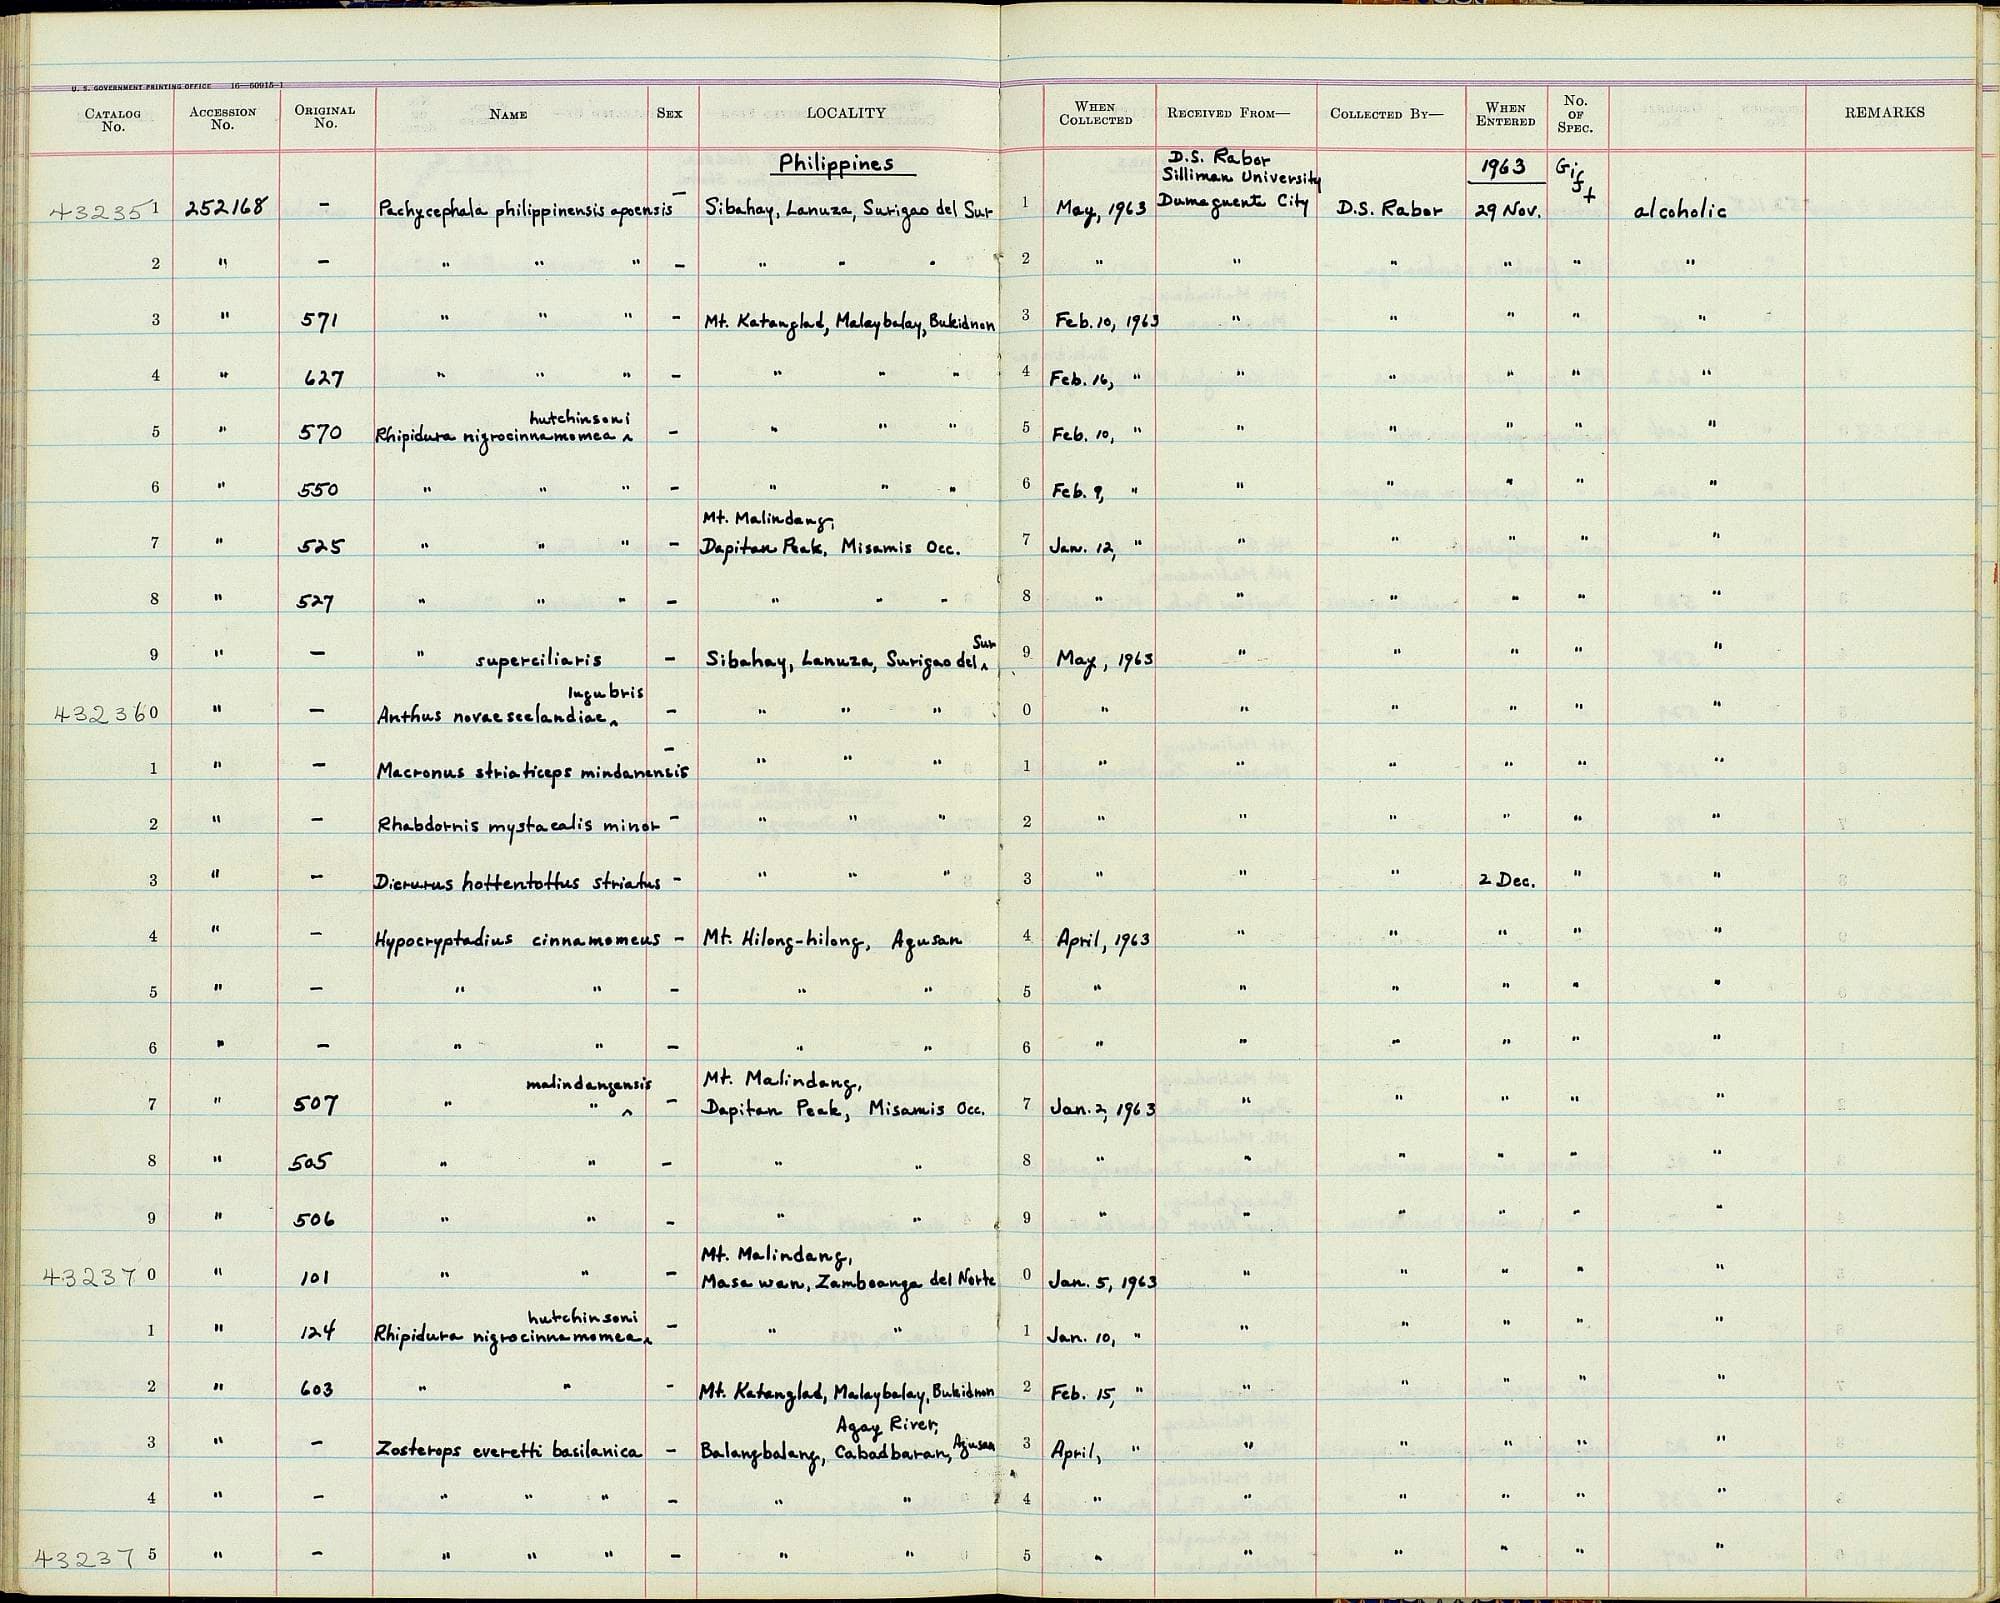 U. S. GOVERNMENT PRINTING OFFICE 16—60915-1
CATALOG No. ACCESSION No. ORIGINAL No. NAME SEX LOCALITY WHEN COLLECTED RECEIVED FROM— COLLECTED BY— WHEN ENTERED No. OF SPEC. REMARKS
Philippines D.S. Rabor Silliman University 1963 Gift
432351 252168 – Pachycephala philippinensis apoensis – Sibahay, Lanuza, Surigao del Sur 1 May, 1963 Dumaguente City D.S. Rabor 29 Nov. alcoholic
2 " – " " " – " " " 2 " " " " " "
3 " 571 " " " – Mt. Katanglad, Malaybalay, Bukidnon 3 Feb. 10, 1963 " " " " "
4 " 627 " " " – " " " 4 Feb. 16, " " " " " "
5 " 570 Rhipidura nigrocinnamomea ^ hutchinsoni – " " " 5 Feb. 10, " " " " " "
6 " 550 " " " – " " " 6 Feb. 9, " " " " " "
Mt. Malindang,
7 " 525 " " " – Dapitan Peak, Misamis Occ. 7 Jan. 12, " " " " " "
8 " 527 " " " – " " " 8 " " " " " "
9 " – " superciliaris – Sibahay, Lanuza, Surigao del ^ Sur 9 May, 1963 " " " " "
432360 " – Anthus novaeseelandiae ^ lugubris – " " " 0 " " " " " "
1 " – Macronus striaticeps mindanensis – " " " 1 " " " " " "
2 " – Rhabdornis mystacalis minor – " " " 2 " " " " " "
3 " – Dicrurus hottentottus striatus – " " " 3 " " " 2 Dec. " "
4 " – Hypocryptadius cinnamomeus – Mt. Hilong-hilong, Agusan 4 April, 1963 " " " " "
5 " – " " – " " 5 " " " " " "
6 " – " " – " " 6 " " " " " "
malindangensis Mt. Malindang,
7 " 507 " " ^ – Dapitan Peak, Misamis Occ. 7 Jan. 2, 1963 " " " " "
8 " 505 " " – " " 8 " " " " " "
9 " 506 " " – " " 9 " " " " " "
Mt. Malindang,
432370 " 101 " " – Masawan, Zamboanga del Norte 0 Jan. 5, 1963 " " " " "
1 " 124 Rhipidura nigrocinnamomea ^ hutchinsoni – " " 1 Jan. 10, " " " " " "
2 " 603 " " – Mt. Katanglad, Malaybalay, Bukidnon 2 Feb. 15, " " " " " "
Agay River,
3 " – Zosterops everetti basilanica – Balangbalang, Cabadbaran, Agusan 3 April, " " " " " "
4 " – " " " – " " 4 " " " " " "
432375 " – " " " – " " 5 " " " " " "